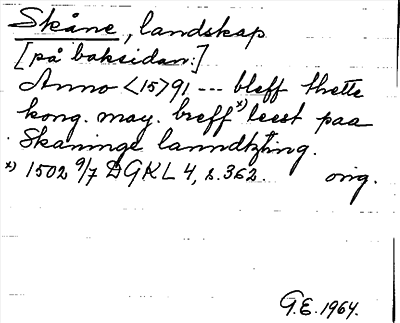 Skåne, landskap
[på baksidan:]
Anno <15>91 --- bleff thette
kong. may. breff x) leest paa
Skaninge lanndtzting.
x) 1502 9/7 DGKL 4, s. 362. orig.
G.E. 1964.